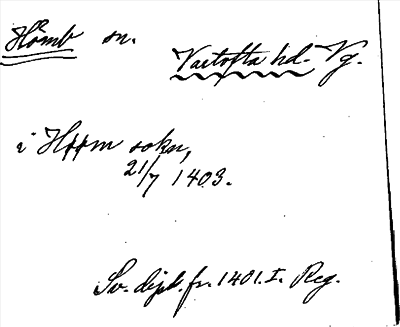 Hömb sn.
Vartofta hd. Vg.
i Høøm sokn,
21/7 1403.
Sv. dipl. fr. 1401. I. Reg.